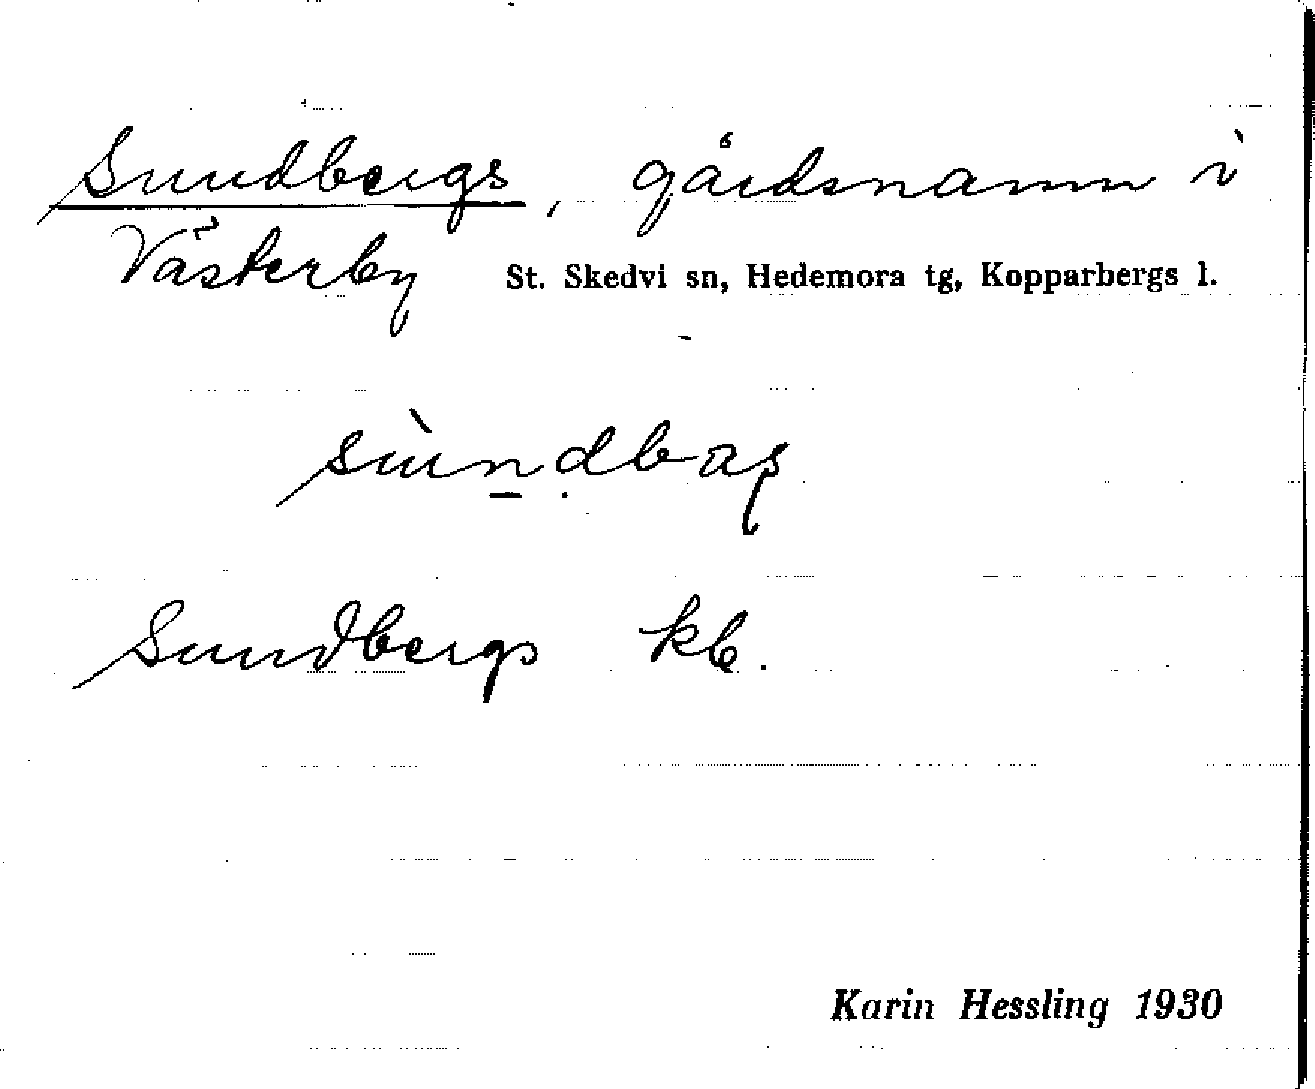 Sundbergs, gårdsnamn i
Västerby St. Skedvi sn, Hedemora tg, Kopparbergs l.
sùn̲ḍbaş
Sundbergs kb.
Karin Hessling 1930